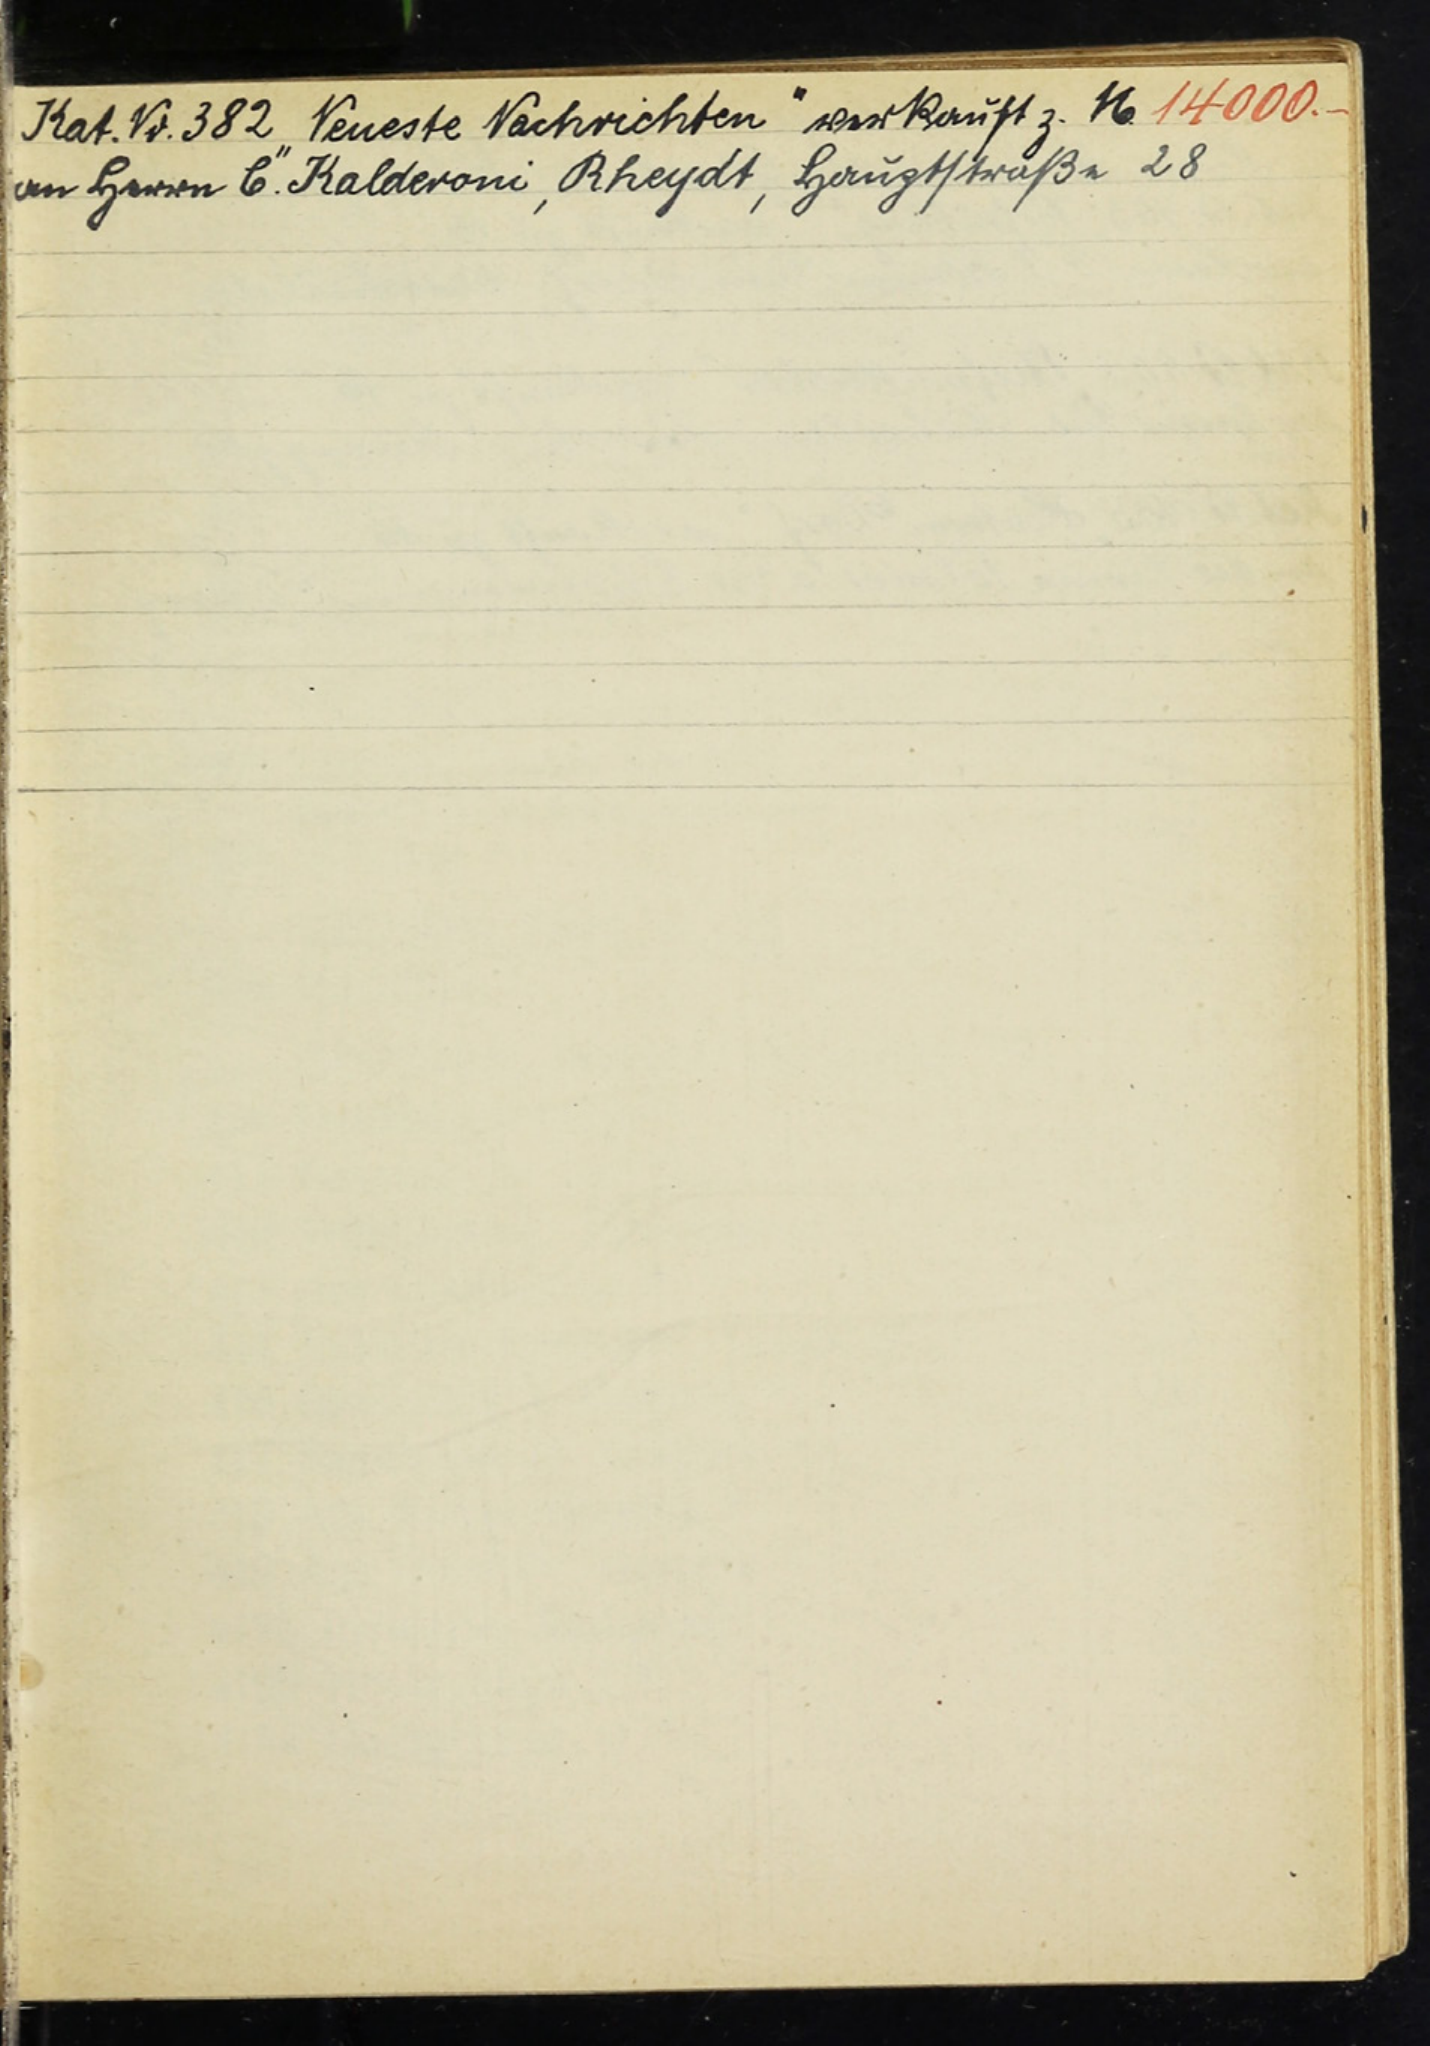 Kat. Nr. 382 „Neueste Nachrichten" verkauft z. M 14000.-
an Herrn C. Kalderoni, Rheydt, Hauptstraße 28